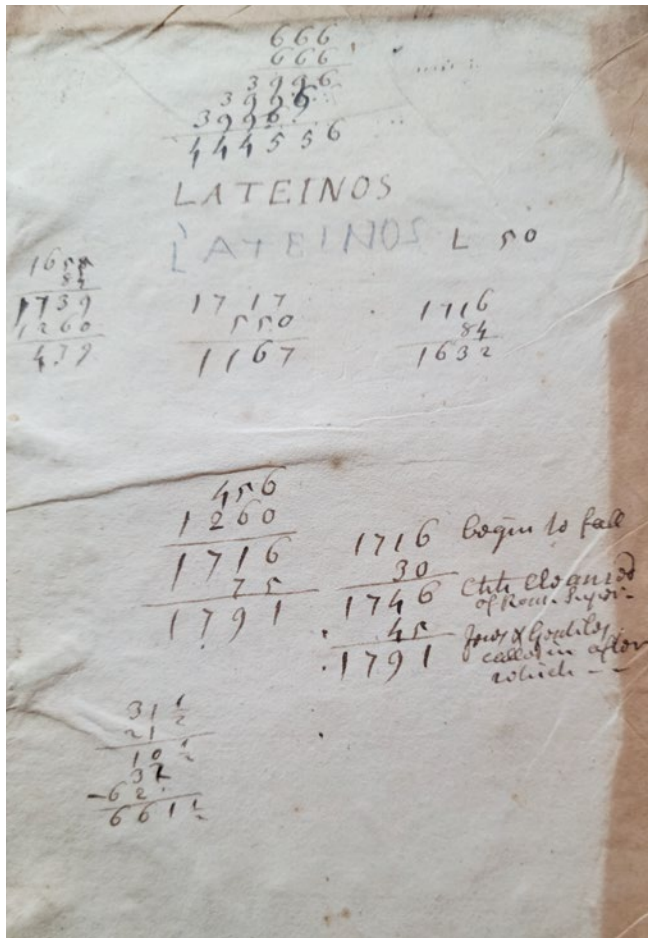 666
666
3996
3996
3996
444556
LATEINOS
LATEINOS L 50
165
84
1739
1260
479
1717
550
1167
1716
84
1632
456
1260
1716
75
1791
1716 begin to fall
30
1746 Chh cleansed
of Rom. Super-
45 Jews & Gentiles
1791 called in after
which - -
31 1/2
21
10 1/2
37
-62
6611